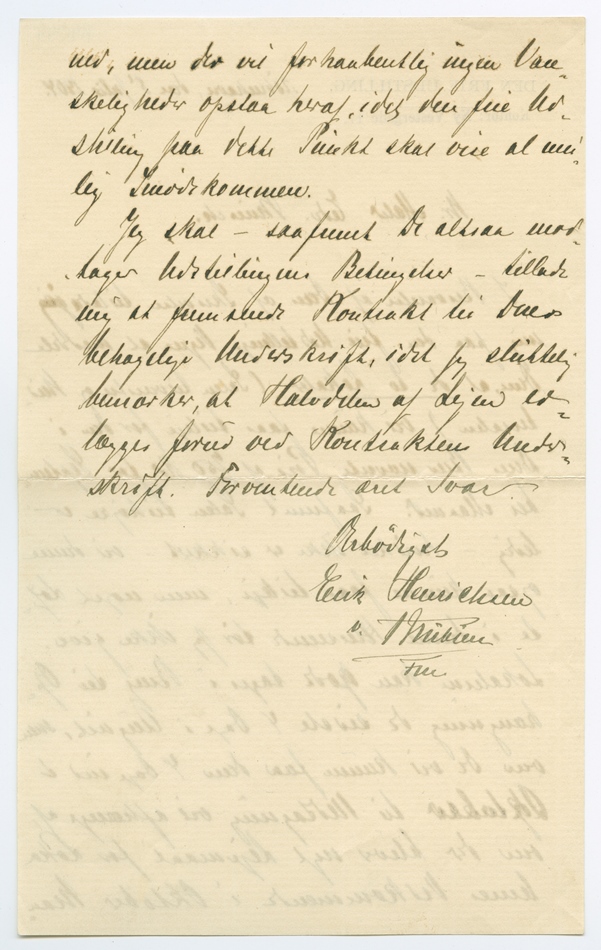 ned, men der vil forhaabentlig ingen Van-
skeligheder opstaa heraf, idet den frie Ud-
stilling paa dette Punkt skal vise al mu-
lig Imødekommen.
Jeg skal – saafremt De altsaa mod-
tager Udstillingens Betingelser – tillade
mig at fremsende Kontrakt til Deres
behagelige Underskrift, idet jeg sluttelig
bemærker, at Halvdelen af Lejen er-
lægges forud ved Kontraktens Under-
skrift. Forventende æret Svar
Ærbødigst
Erik Henrichsen
v.
Fm